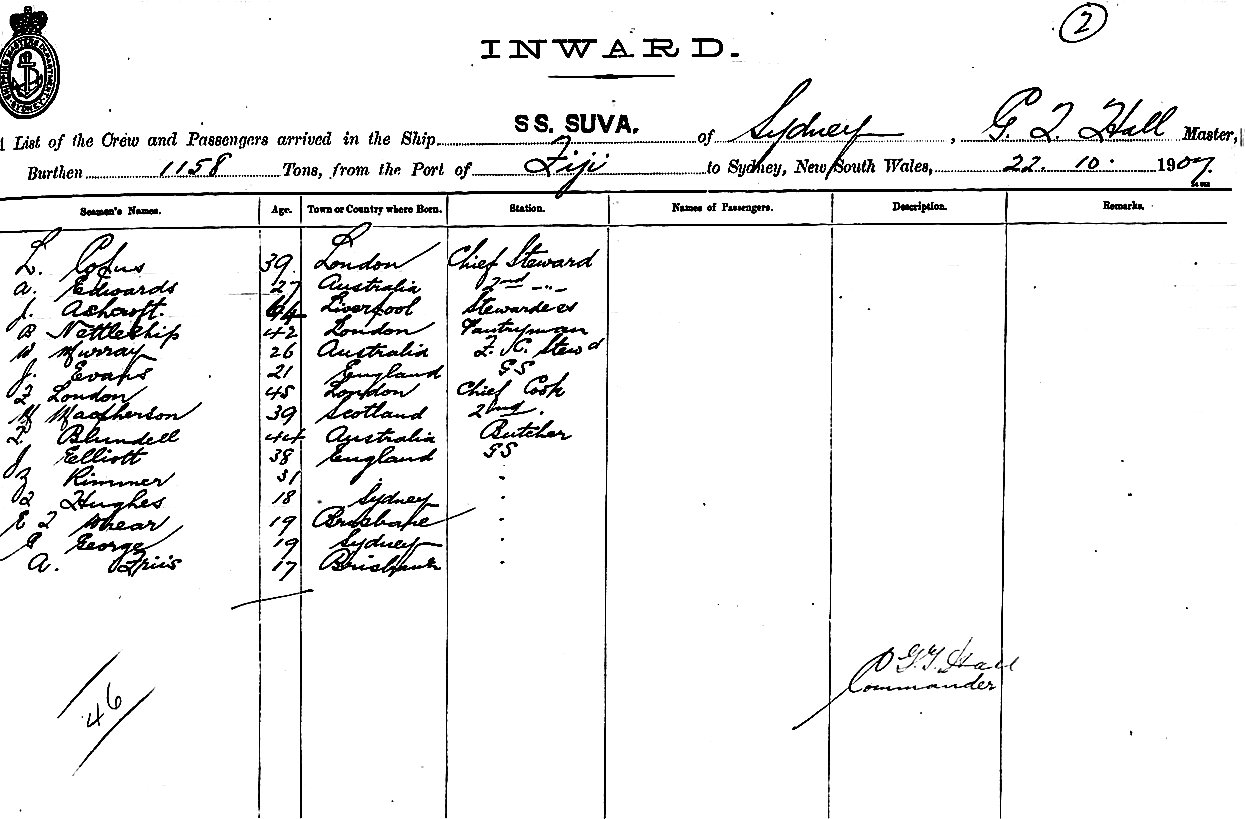 2
INWARD.
List of the Crew and Passengers arrived in the Ship SS. SUVA. of Sydney, G. T. Hall Master,
Burthen 1158 Tons, from the Port of Fiji to Sydney, New South Wales, 22. 10. 1907.
Seamen's Names. Age. Town or Country where Born. Station. Names of Passengers. Description. Remarks.
L. 39. London Chief Steward
A. Edwards 27 Australia 2nd -"-
J. Ashcroft. 44 Liverpool Stewardess
B Nettleship 42 London Pantryman
W Murray 26 Australia F. C. Stewd
J. Evans 21 England GS
F London 45 London Chief Cook
M Macpherson 39 Scotland 2nd .
F. Blundell 44 Australia Butcher
J Elliott 38 England GS
Rimmer 31 "
Hughes 18 . Sydney "
E F 19 Brisbane "
G George 19 Sydney "
A. Friis 17 Brisbane "
G. T. Hall
Commander
46